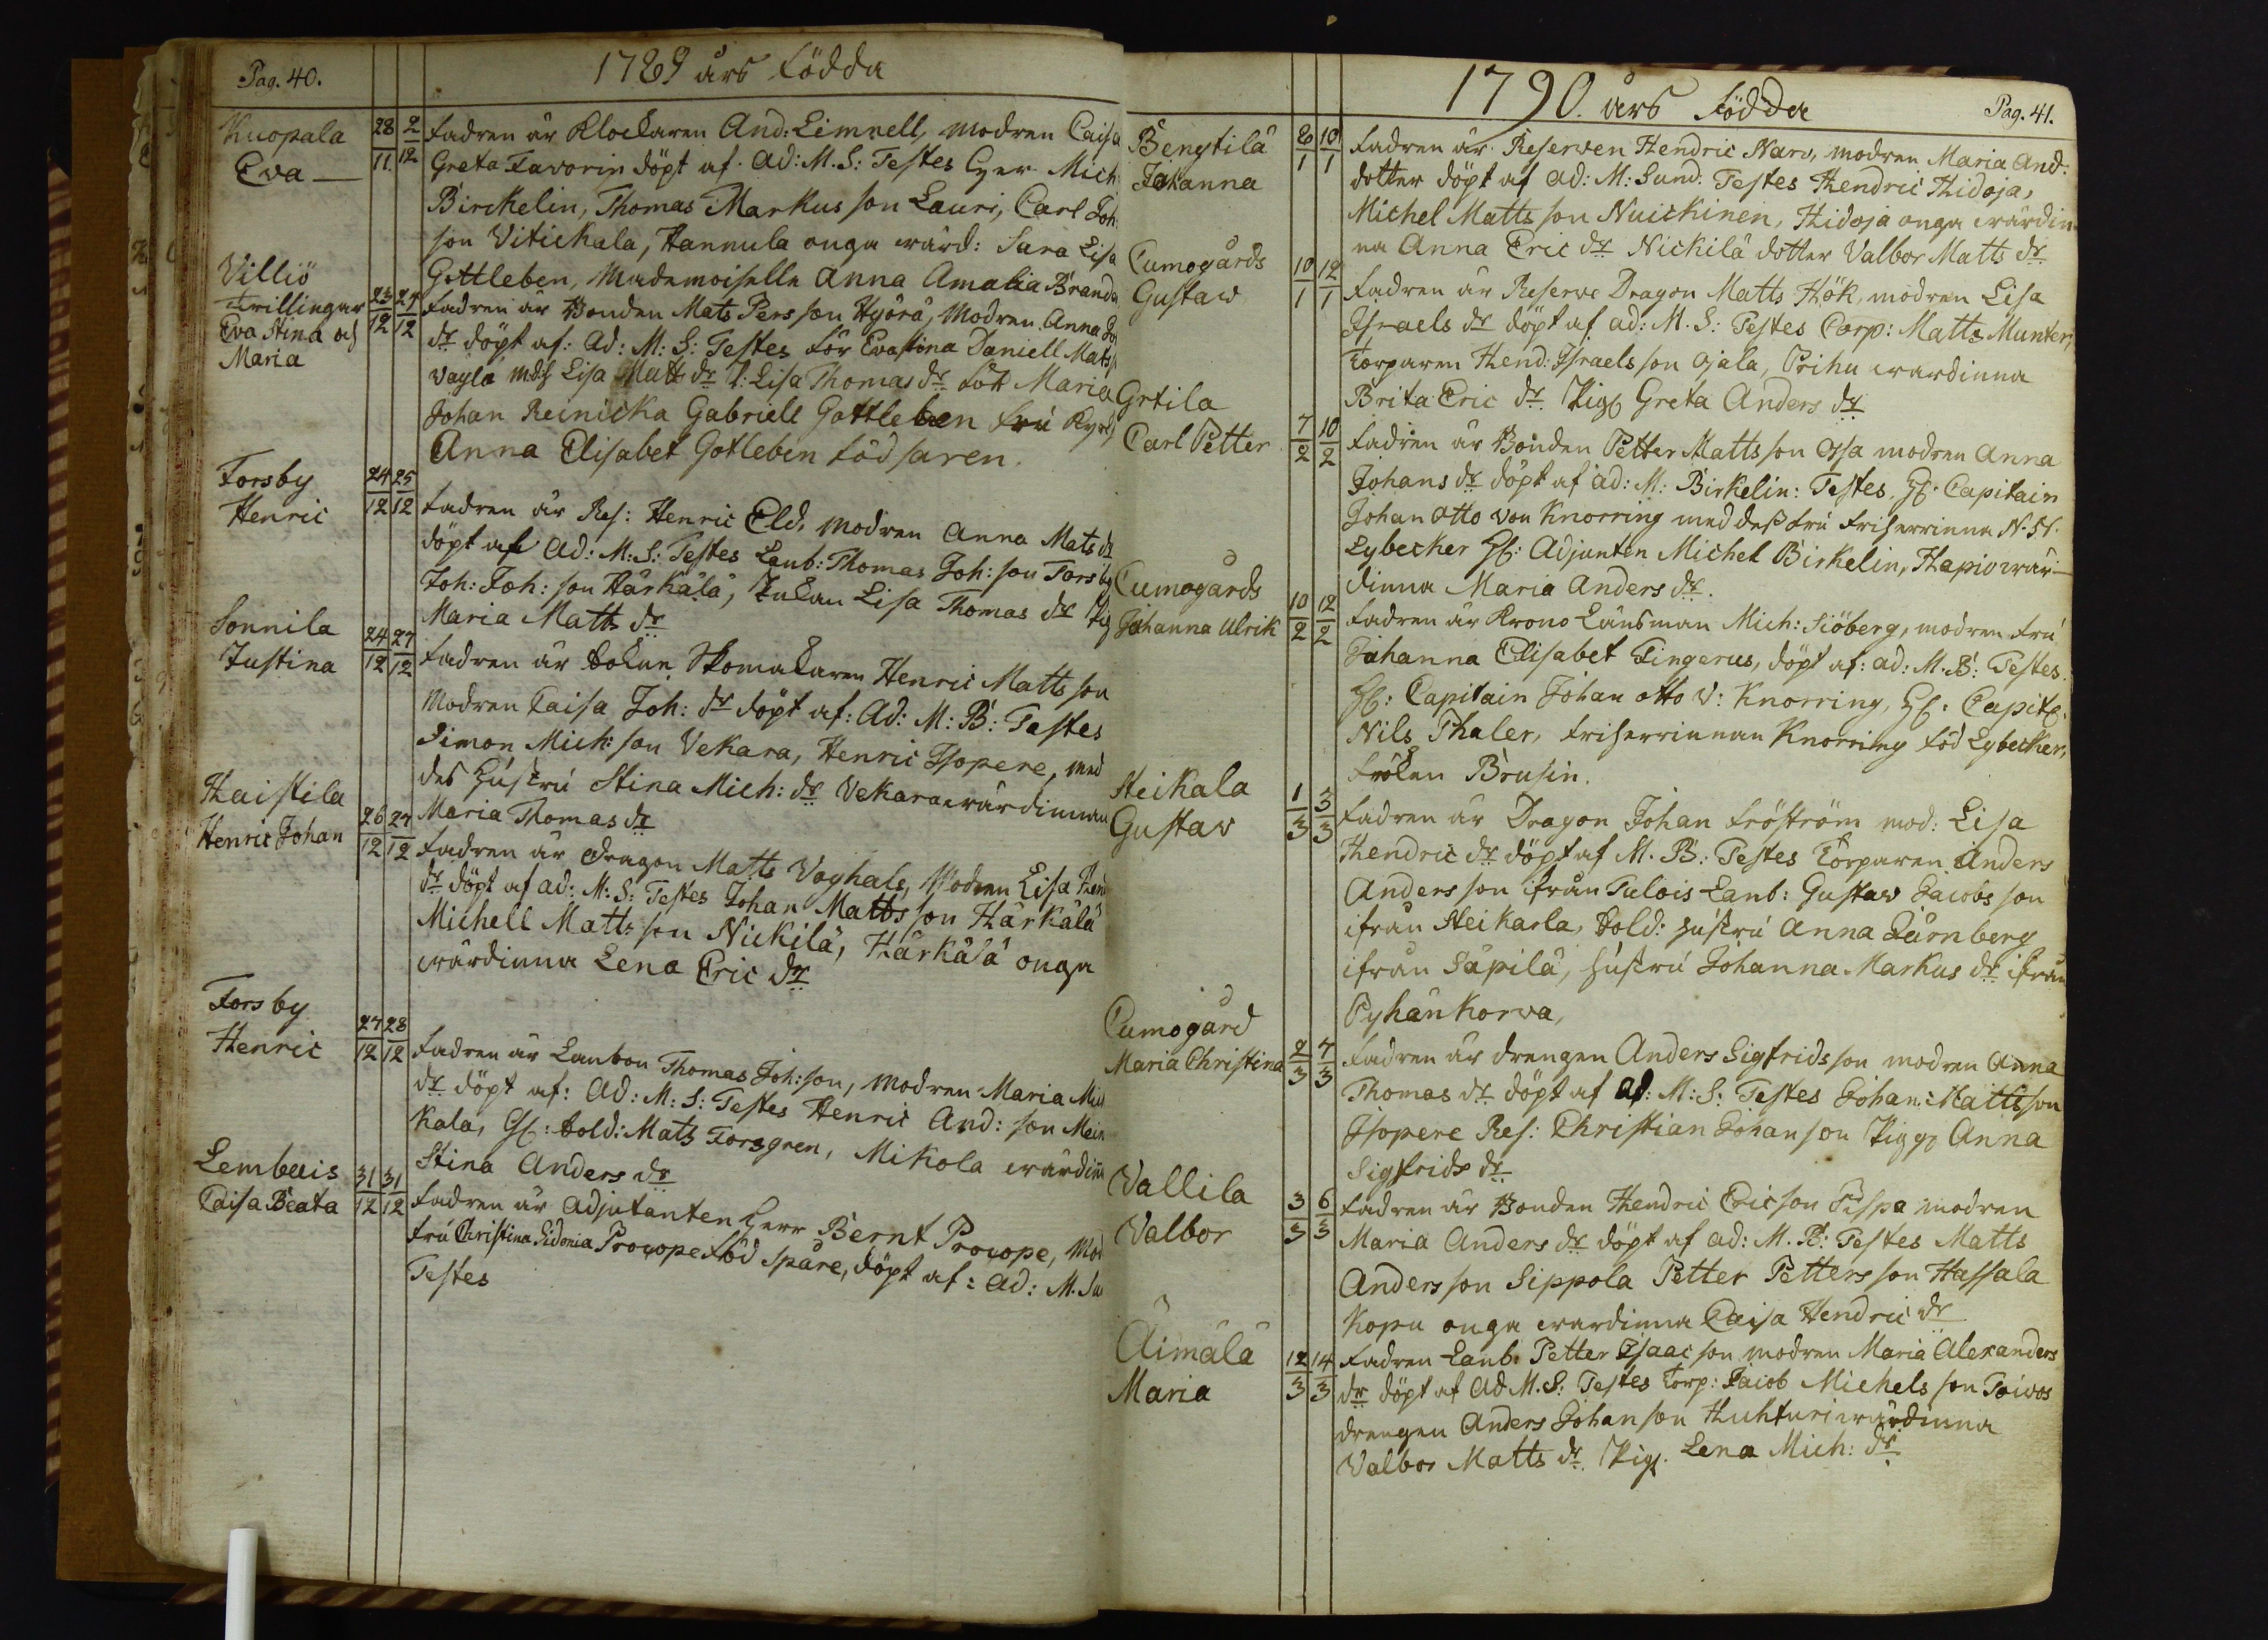 Pag. 40.
1789 års födda
Kuopala
Eva
28/11. 2/12
fadren är Klockaren And: Limnell, modren Caisa
Greta Favorin döpt af. Ad: M. S: Testes Herr Mich:
Birckelin, Thomas Markus son Lauri, Carl Joh:
son Vitickala, Hannula onga wärd: Sara Lisa
Gottleben, Mademoiselle Anna Amalia Branda
Villiö
Trillingar
Eva Stina och
Maria
23/12 27/12
fadren är Bonden Mats Pers son Hyörä, Modren Anna Jo
dr döpt af: Ad: M: S: Testes för Evastina Daniell Mats
Vayla Lisa Matts dr Lisa Thomas dr för Maria
Johan Reinicka Gabriell Gottleben fru
Anna Elisabet Gotleben född saren.
Forsby
Henric
24/12 25/12
fadren är Res: Henric Eld, modren Anna Mats dr
döpt af Ad: M: S: Testes Lanb: Thomas Joh: son Forsby
Joh: Joh: son Härkälä, Enkan Lisa Thomas dr Pig
Maria Matts dr
Sonnila
Justina
24/12 27/12
fadren är Sokne Skomakaren Henric Matts son
Modren Caisa Joh: dr döpt af: Ad: M: B: Testes
Simon Mich: son Vekara, Henric Isopere, med
des hustru Stina Mich: dr Vekara wärdinnan
Maria Thomas dr
Haistila
Henric Johan
26/12 27/12
fadren är dragon Matts Vaghals, Modren Lisa Hend
dr döpt af ad: M: S: Testes Johan Matts son Härkälä
Michell Matts son Nickilä, Härkälä onga
wärdinna Lena Eric dr
Forsby
Henric
27/12 28/12
fadren är Lanbon Thomas Joh: son, Modren Maria Mich
dr döpt af: Ad: M: S: Testes Henric And: son Mein
Kala, Gl: Sold: Mats Forsgren, Mikola wärdinna
Stina Anders dr
Lembois
Caisa Beata
31/12 31/12
fadren är Adjutanten Herr Bernt Procope, Mod
fru Christina Sidonia Procope född Spåre, döpt af: Ad: M. Su
Testes
1790. års födda
Pag. 41.
Bengtilä
Johanna
6/1 10/1
fadren är Reserven Hendric Narv, modren Maria And:
dotter döpt af ad: M: Sund: Testes Hendric Hidoja,
Michel Matts son Nuickinen, Hidoja onga wärdin
na Anna Eric dr Nickilä dotter Valbor Matts dr
Cumogårds
Gustaw
10/1 12/1
fadren är Reserve Dragon Matts Hök, modren Lisa
Israels dr döpt af ad: M. S: Testes Corp: Matts Munter,
Torparen Hend: Israels son Ojala, Prihu wärdinna
Brita Eric dr Pig Greta Anders dr
Grtila
Carl Petter
7/2 10/2
fadren är Bonden Petter Matts son Ossa modren Anna
Johans dr döpt af ad: M: Birkelin: Testes. H: Capitain
Johan Otto von Knorring med dess fru friherrinna N. H.
Lybecker H: Adjunten Michel Birkelin, Hapio wär-
dinna Maria Anders dr.
Cumogårds
Johanna Ulrik
10/2 12/2
fadren är Krono Länsman Mich: Siöberg, modren fru
Johanna Elisabet Fingerus, döpt af: ad: M. B: Testes.
H: Capitain Johan otto v: Knorring, H: Capit:
Nils Thaler, friherrinnan Knorring född Lybecker,
fröken Brusin.
Heikala
Gustav
1/3 3/3
fadren är Dragon Johan fröström mod: Lisa
Hendric dr döpt af M. B: Testes Torparen Anders
Anders son ifrån Talois Lanb: Gustaw Jacobs son
ifrån Heikarla, Sold: hustru Anna Qvarnberg
ifrån Säpilä, hustru Johanna Markus dr ifrån
Pyhänkorva,
Cumogård
Maria Christina
2/3 7/3
fadren är drengen Anders Sigfrids son modren Anna
Thomas dr döpt af Ad: M: S: Testes Johan Mattsson
Isopere Res: Christian Johan son Piga Anna
Sigfrids dr
Vallila
Valbor
3/3 6/3
fadren är Bonden Hendric Ericson Pispa modren
Maria Anders dr döpt af ad: M. B: Testes Matts
Anders son Sippola Petter Petters son Hassala
Kopu onga wärdinna Caisa Hendric dr
Äimälä
Maria
12/3 14/3
fadren Lanb: Petter Isaac son modren Maria Alexanders
dr döpt af Ad M. S: Testes Torp: Jacob Michels son Toivos
drengen Anders Johan son Huhturi wärdinna
Valbor Matts dr Pig. Lena Mich: dr